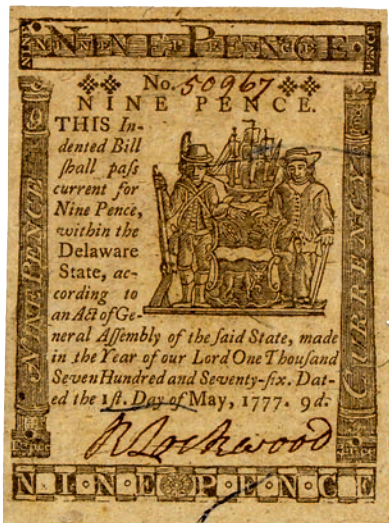 NINE PENCE
No. 50967
NINE PENCE.
THIS In-
dented Bill
ſhall paſs
current for
Nine Pence,
within the
Delaware
State, ac-
cording to
an Act of Ge-
neral Aſſembly of the ſaid State, made
in the Year of our Lord One Thouſand
Seven Hundred and Seventy-ſix. Dat-
ed the 1ſt. Day of May, 1777. 9d.
NINE PENCE
CURRENCY
R Lockwood
NINE PENCE